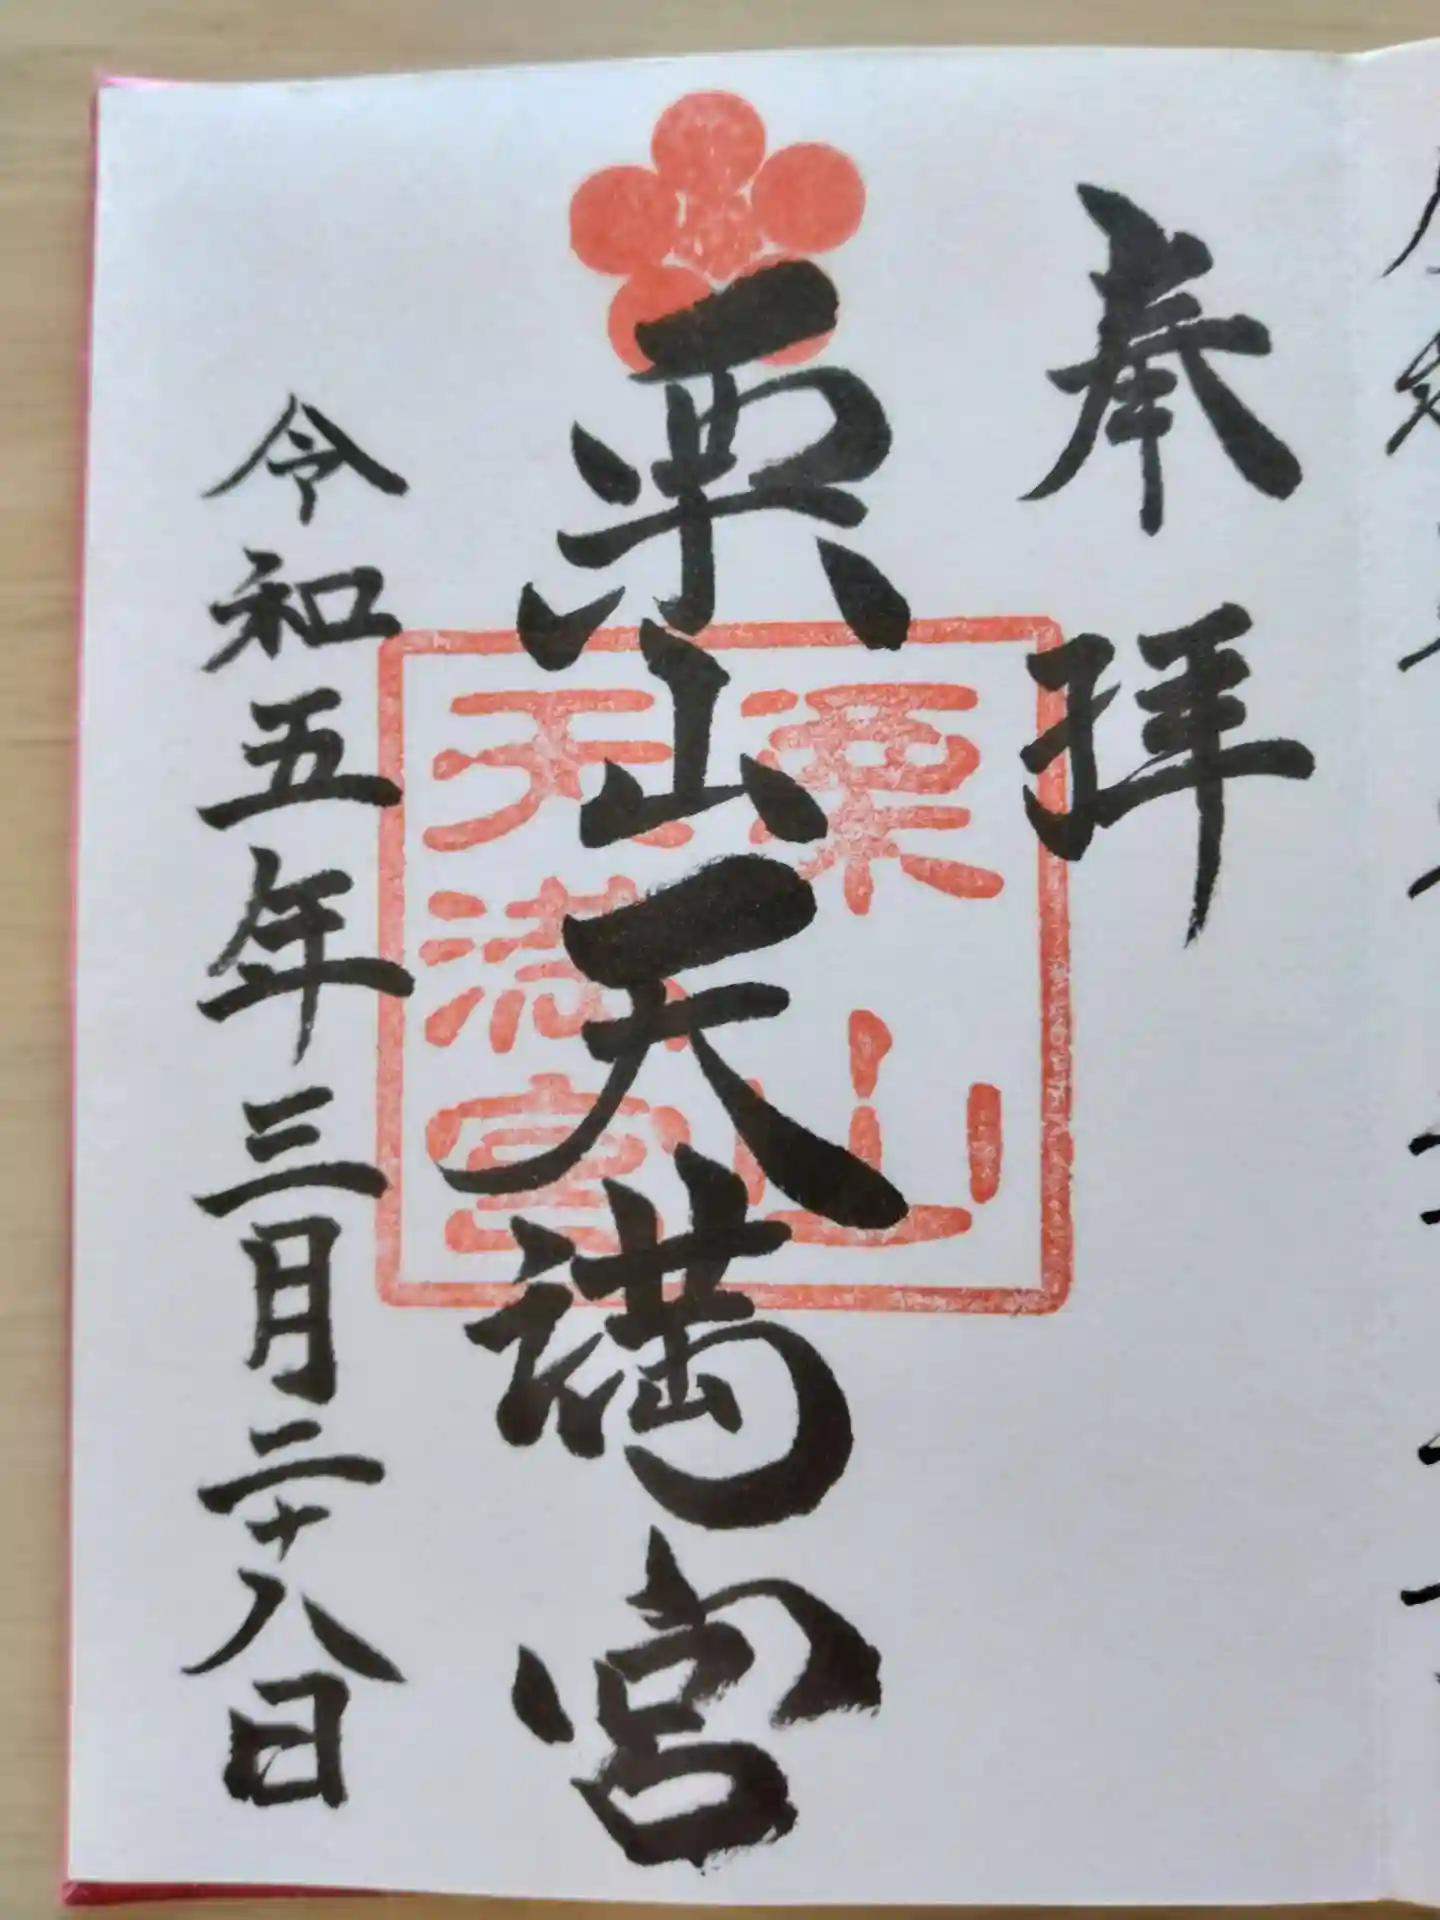 奉拝
栗山天満宮
栗山
天満宮
令和五年三月二十八日